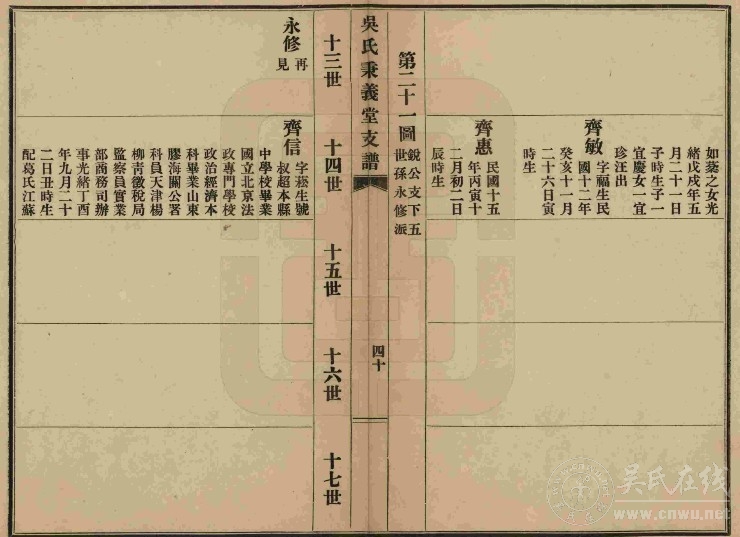 如棻之女光
緒戊戌年五
月二十一日
子時生子一
宜慶女一宜
珍汪出
齊敏
字福生民
國十二年
癸亥十一月
二十六日寅
時生
齊惠
民國十五
年丙寅十
二月初二日
辰時生
第二十一圖
銳公支下五
世孫永修派
吳氏秉義堂支譜
四十
十三世
十四世
十五世
十六世
十七世
永修
再見
齊信
字菘生號
叔超本縣
中學校畢業
國立北京法
政專門學校
政治經濟本
科畢業山東
膠海關公署
科員天津楊
柳青徵稅局
監察員實業
部商務司辦
事光緒丁酉
年九月二十
二日丑時生
配葛氏江蘇
吳氏在线
www.cnwu.net